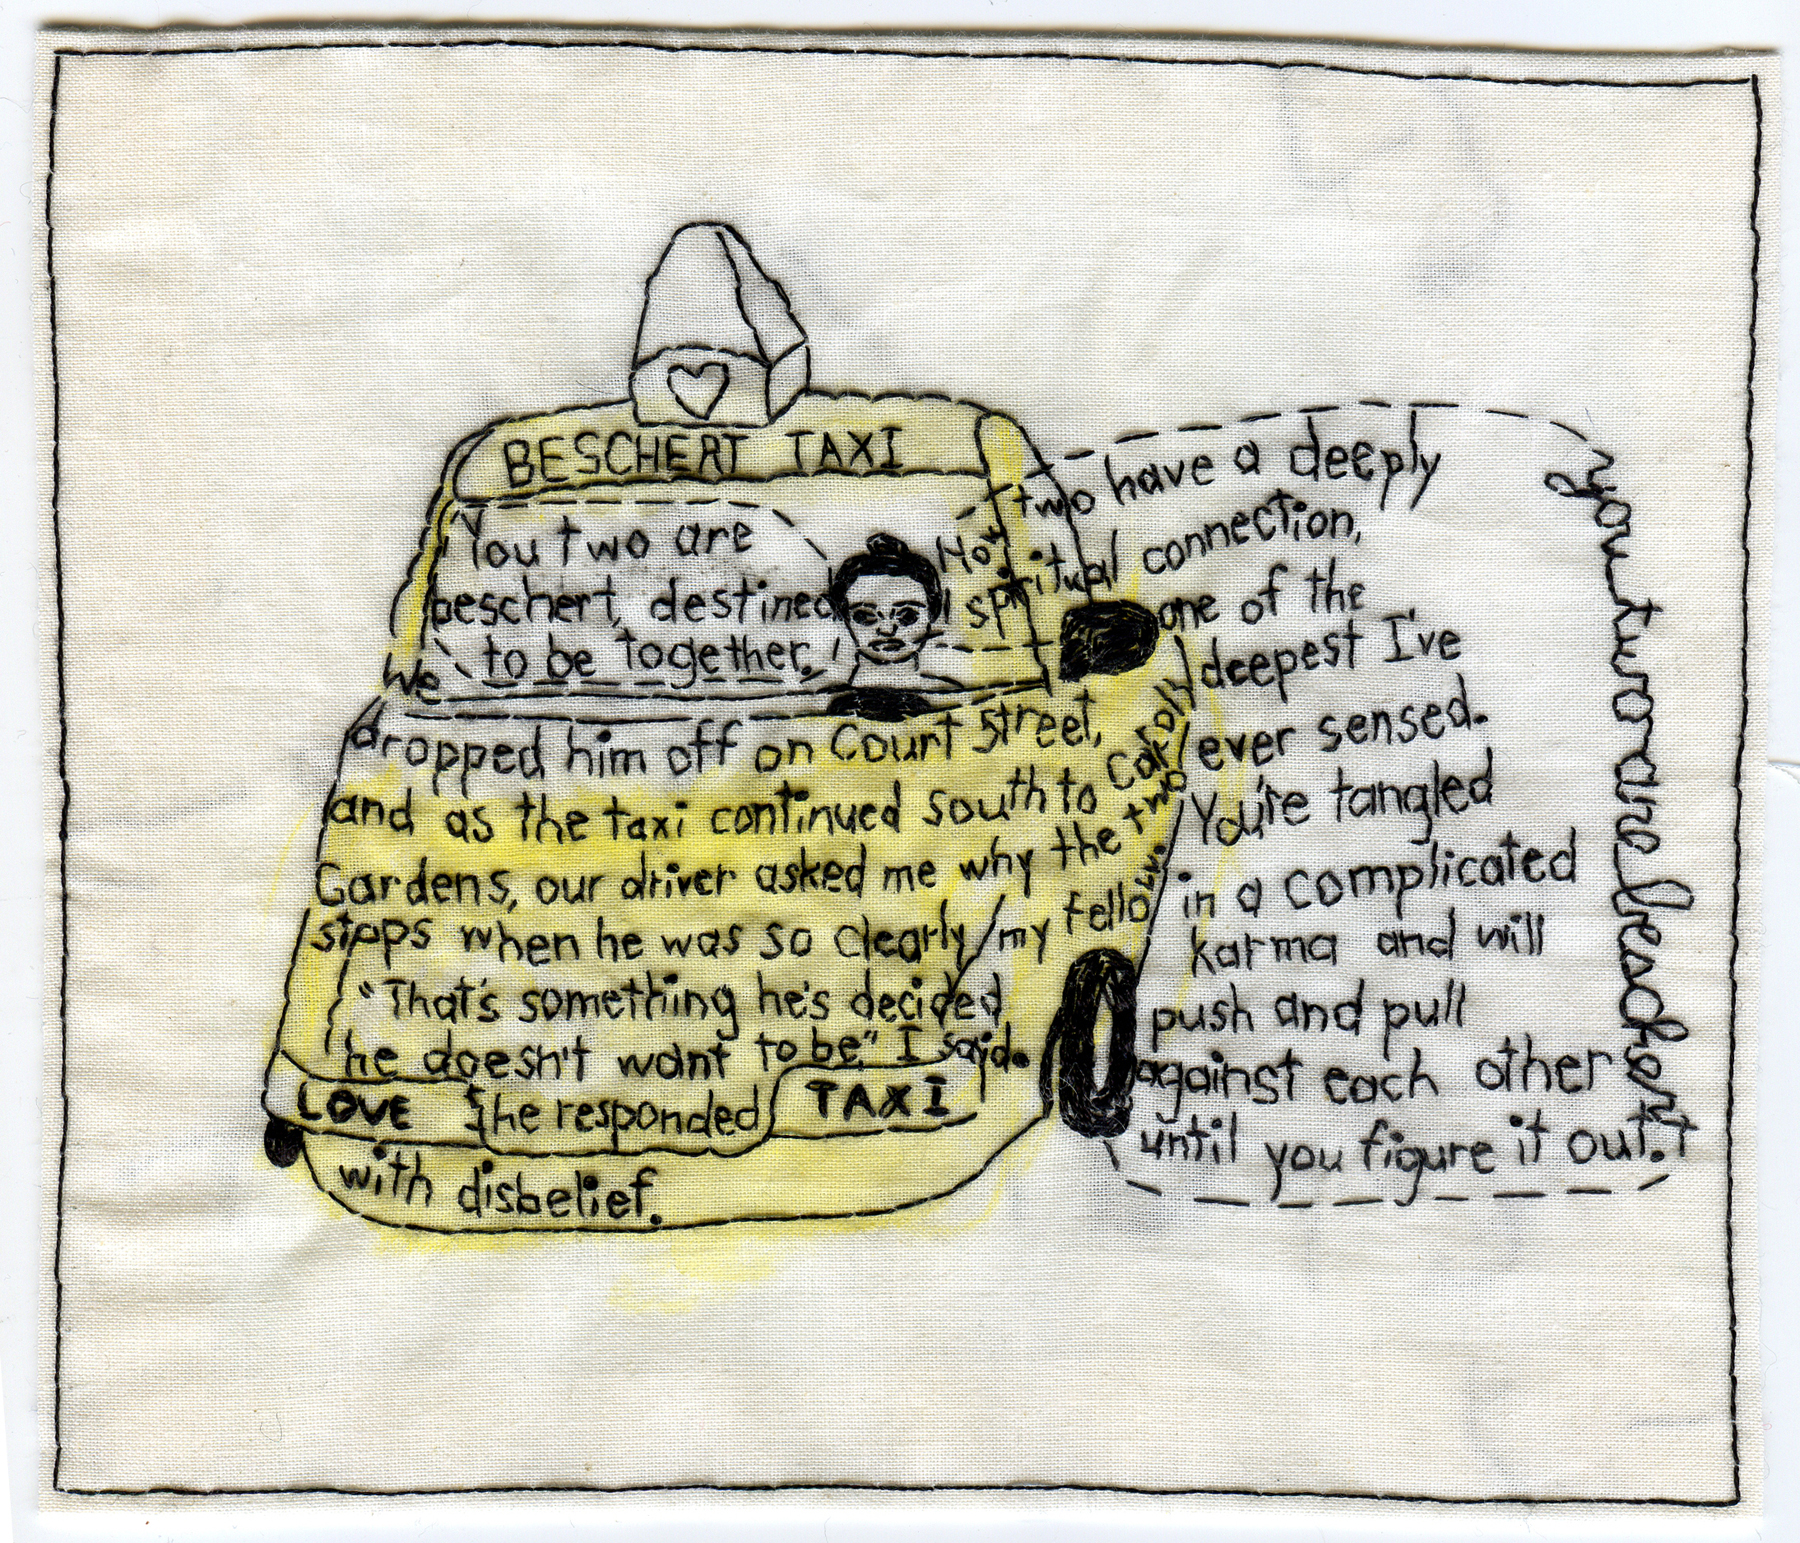 BESCHERT TAXI
"You two are
beschert, destined
to be together."
We
dropped him off on Court Street,
and as the taxi continued south to Carroll
Gardens, our driver asked me why the two
stops when he was so clearly my fellow.
"That's something he's decided
he doesn't want to be," I said.
LOVE
he responded
TAXI
with disbelief.
two have a deeply
spiritual connection,
one of the
deepest I've
ever sensed.
You're tangled
in a complicated
karma and will
push and pull
against each other
until you figure it out.
you two are beschert